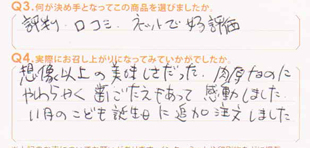 Q3.何が決め手となってこの商品を選びましたか。
評判・口コミ・ネットで好評価
Q4.実際にお召し上がりになってみていかがでしたか。
想像以上の美味しさだった。肉厚なのに
やわらかく歯ごたえもあって感動しました。
11月のこども誕生日に追加注文しました